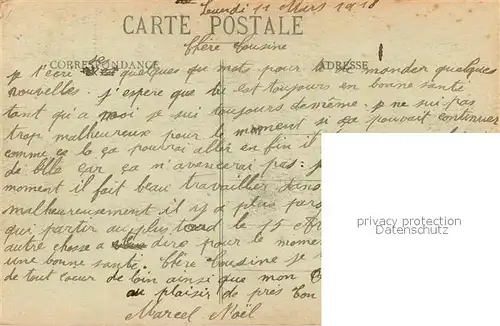 Leundi 11 Mars 1918
CARTE POSTALE
Chère Cousine
CORRESPONDANCE ADRESSE
je t'ecrie quelques que mots pour te de monder quelques
nouvelles. j'espere que tu est toujours en bonne santé
tant qu'a moi je sui toujours de même. je ne sui pas
trop malheureux pour le moment si ça pouvait continuer
comme ça la ça pourai aller en fin il
de blle çar ça n'avencerai pas: j
moment il fait beau travailler dans
malheureusement il n'y a plus pers
qui partir au plus tard le 15 Av
autre chosse a dire pour le mome
une bonne santé. Chère Cousine je
de tout coeur de loin ainsi que mon
au plaisir de près ton
Marcel Noël
privacy protection
Datenschutz